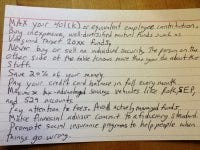 MAX your 401(k) or equivalent employee contribution.
Buy inexpensive, well-diversified mutual funds such as
Vanguard Target 20XX funds.
Never buy or sell an individual security. The person on the
other side of the table knows more than you do about this
stuff.
Save 20% of your money.
Pay your credit card balance in full every month.
Maximize tax-advantaged savings vehicles like Roth, SEP,
and 529 accounts.
Pay attention to fees. Avoid actively managed funds.
Make financial advisor commit to a fiduciary standard.
Promote social insurance programs to help people when
things go wrong.